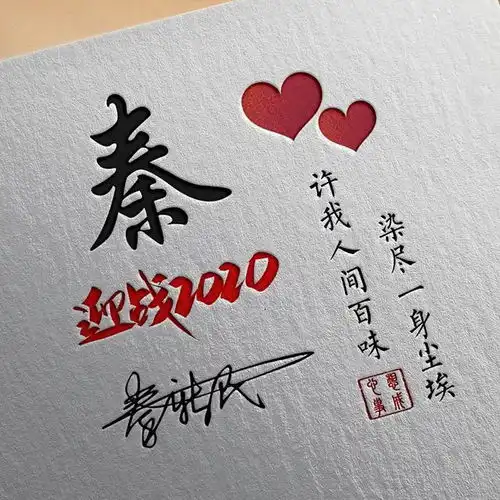 秦
迎战2020
染尽一身尘埃
许我人间百味
心想
事成